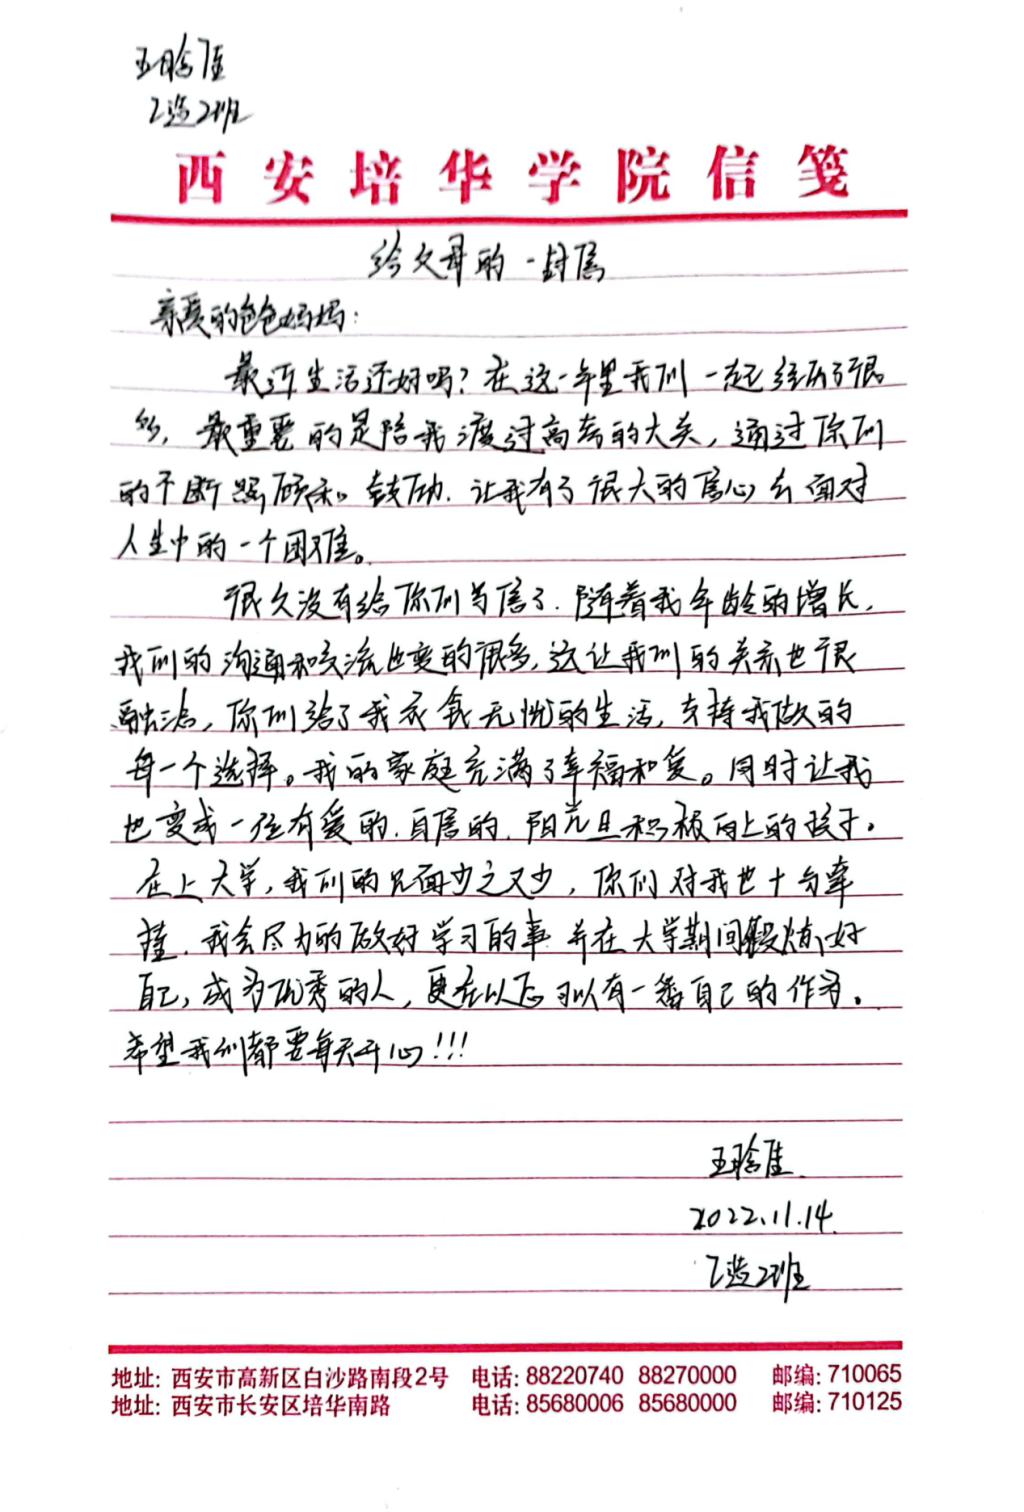 王晗
造2班
西安培华学院信笺
给父母的一封信
亲爱的爸爸妈妈：
最近生活还好吗？在这一年里我们一起经历了很
多，最重要的是陪我渡过高考的大关，通过你们
的不断照顾和鼓励，让我有了很大的信心去面对
人生中的一个困难。
很久没有给你们写信了，随着我年龄的增长，
我们的沟通和交流也变的很多，这让我们的关系也很
融洽，你们给了我衣食无忧的生活，支持我做的
每一个选择。我的家庭充满了幸福和爱。同时让我
也变成一位有爱的，自信的，阳光且积极向上的孩子。
在上大学，我们的见面少之又少，你们对我也十分牵
挂，我会尽力的做好学习的事并在大学期间锻炼好
自己，成为优秀的人，更在以后可以有一番自己的作为。
希望我们都要每天开心！！！
王晗
2022.11.14
造2班
地址：西安市高新区白沙路南段2号 电话：88220740 88270000 邮编：710065
地址：西安市长安区培华南路 电话：85680006 85680000 邮编：710125